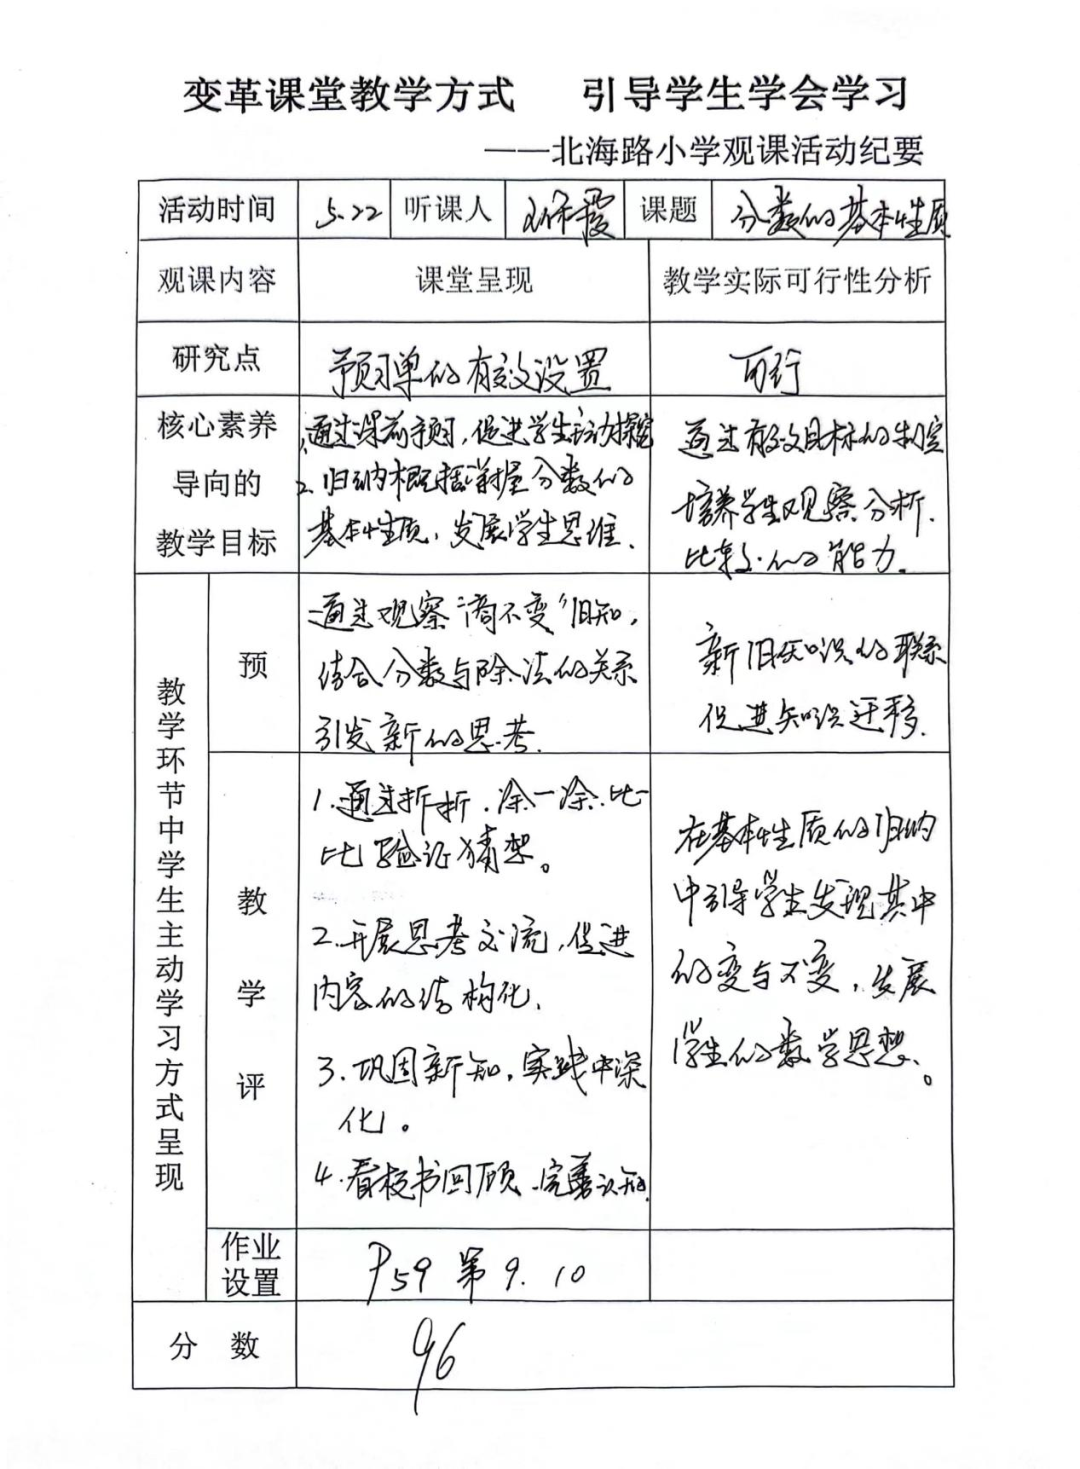 变革课堂教学方式 引导学生学会学习
——北海路小学观课活动纪要
活动时间 5.22 听课人 霞 课题 分数的基本性质
观课内容 课堂呈现 教学实际可行性分析
研究点 预习单的有效设置 可行
核心素养
导向的
教学目标
1.通过课前预习,促进学生主动探究
2.归纳概括掌握分数的
基本性质,发展学生思维.
通过有效目标的制定
培养学生观察分析.
比较.的能力.
教学环节中学生主动学习方式呈现
预
通过观察“商不变”旧知,
结合分数与除法的关系
引发新的思考.
新旧知识的联系
促进知识迁移.
教
学
评
1.通过折折.涂一涂.比一
比验证猜想。
2.开展思考交流,促进
内容的结构化.
3.巩固新知,实践中深
化。
4.看板书回顾.完善认知.
在基本性质的归纳
中引导学生发现其中
的变与不变,发展
学生的数学思想。
作业
设置
P59 第9.10
分 数 96